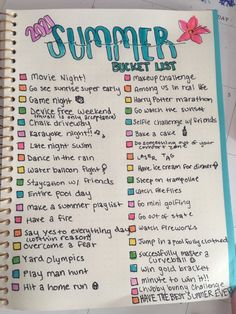 2021
SUMMER
BUCKET LIST
Movie Night!
Go see sunrise super early
Game night
Device free weekend
(music is only acceptance)
Chalk driveway
Karaoke night!!
Late night swim
Dance in the rain
Water balloon fight
Staycation w/ friends
Entire pool day
make a summer playlist
Have a fire
Say yes to everything day
(within reason)
overcome a fear
Yard Olympics
Play man hunt
Hit a home run
Makeup challenge
Among us in real life
Harry Potter marathon
Go watch the sunset
Selfie challenge w/ friends
Bake a cake
Do something out of your
comfort zone
LASER TAG
Have ice cream for dinner
Sleep on trampoline
Catch fireflies
Go mini golfing
Go out of state
Watch fireworks
Jump in a pool fully clothed
Successfully master a
curveball
win gold bracket
minute to win it!!
Chubby bunny Challenge
HAVE THE BEST SUMMER EVER